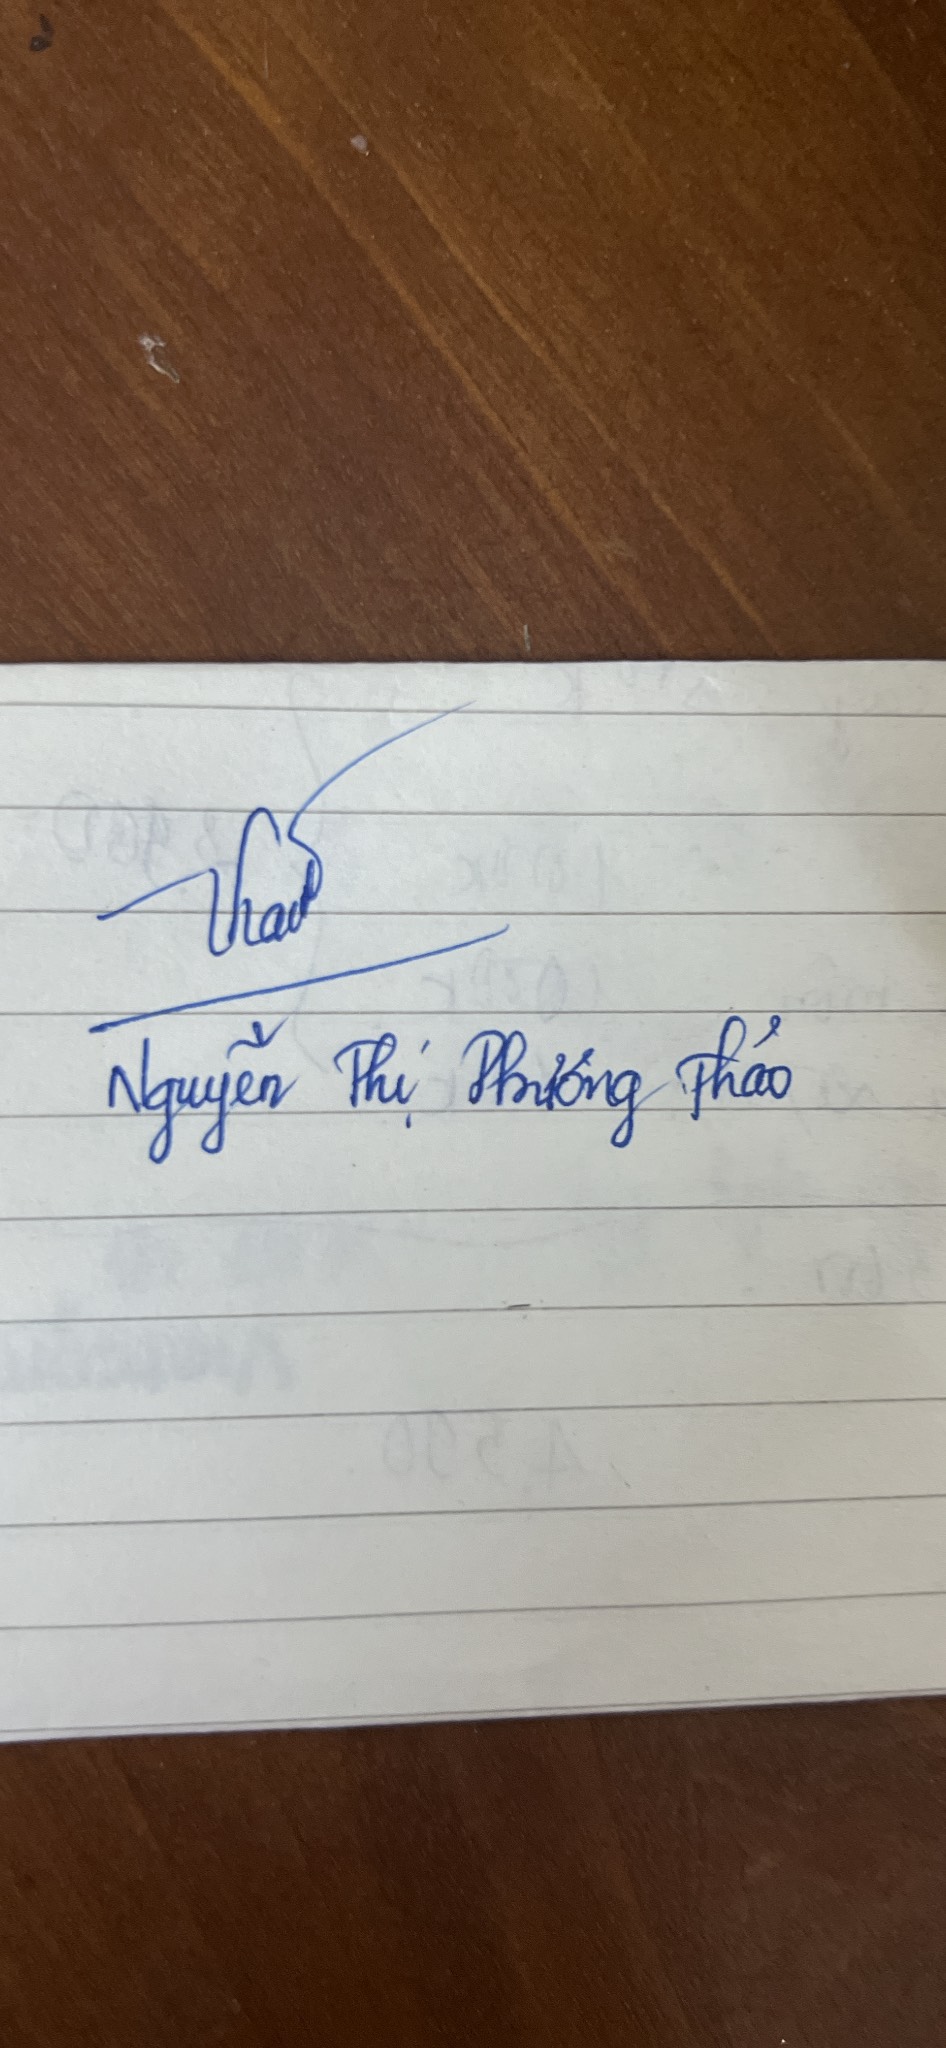 Thảo
Nguyễn Thị Phương Thảo